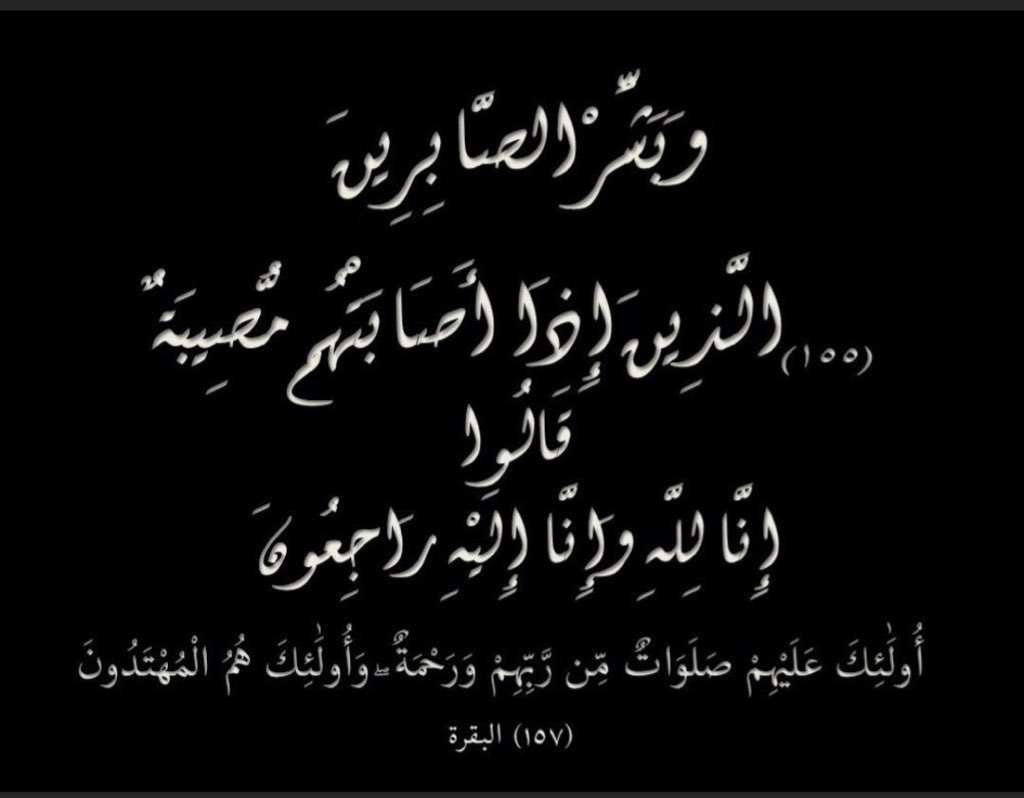 وَبَشِّرْ الصَّابِرِينَ
(١٥٥) الَّذِينَ إِذَا أَصَابَتْهُم مُّصِيبَةٌ
قَالُوا
إِنَّا لِلَّهِ وَإِنَّا إِلَيْهِ رَاجِعُونَ
أُولَٰئِكَ عَلَيْهِمْ صَلَوَاتٌ مِّن رَّبِّهِمْ وَرَحْمَةٌ ۖ وَأُولَٰئِكَ هُمُ الْمُهْتَدُونَ
(١٥٧) البقرة